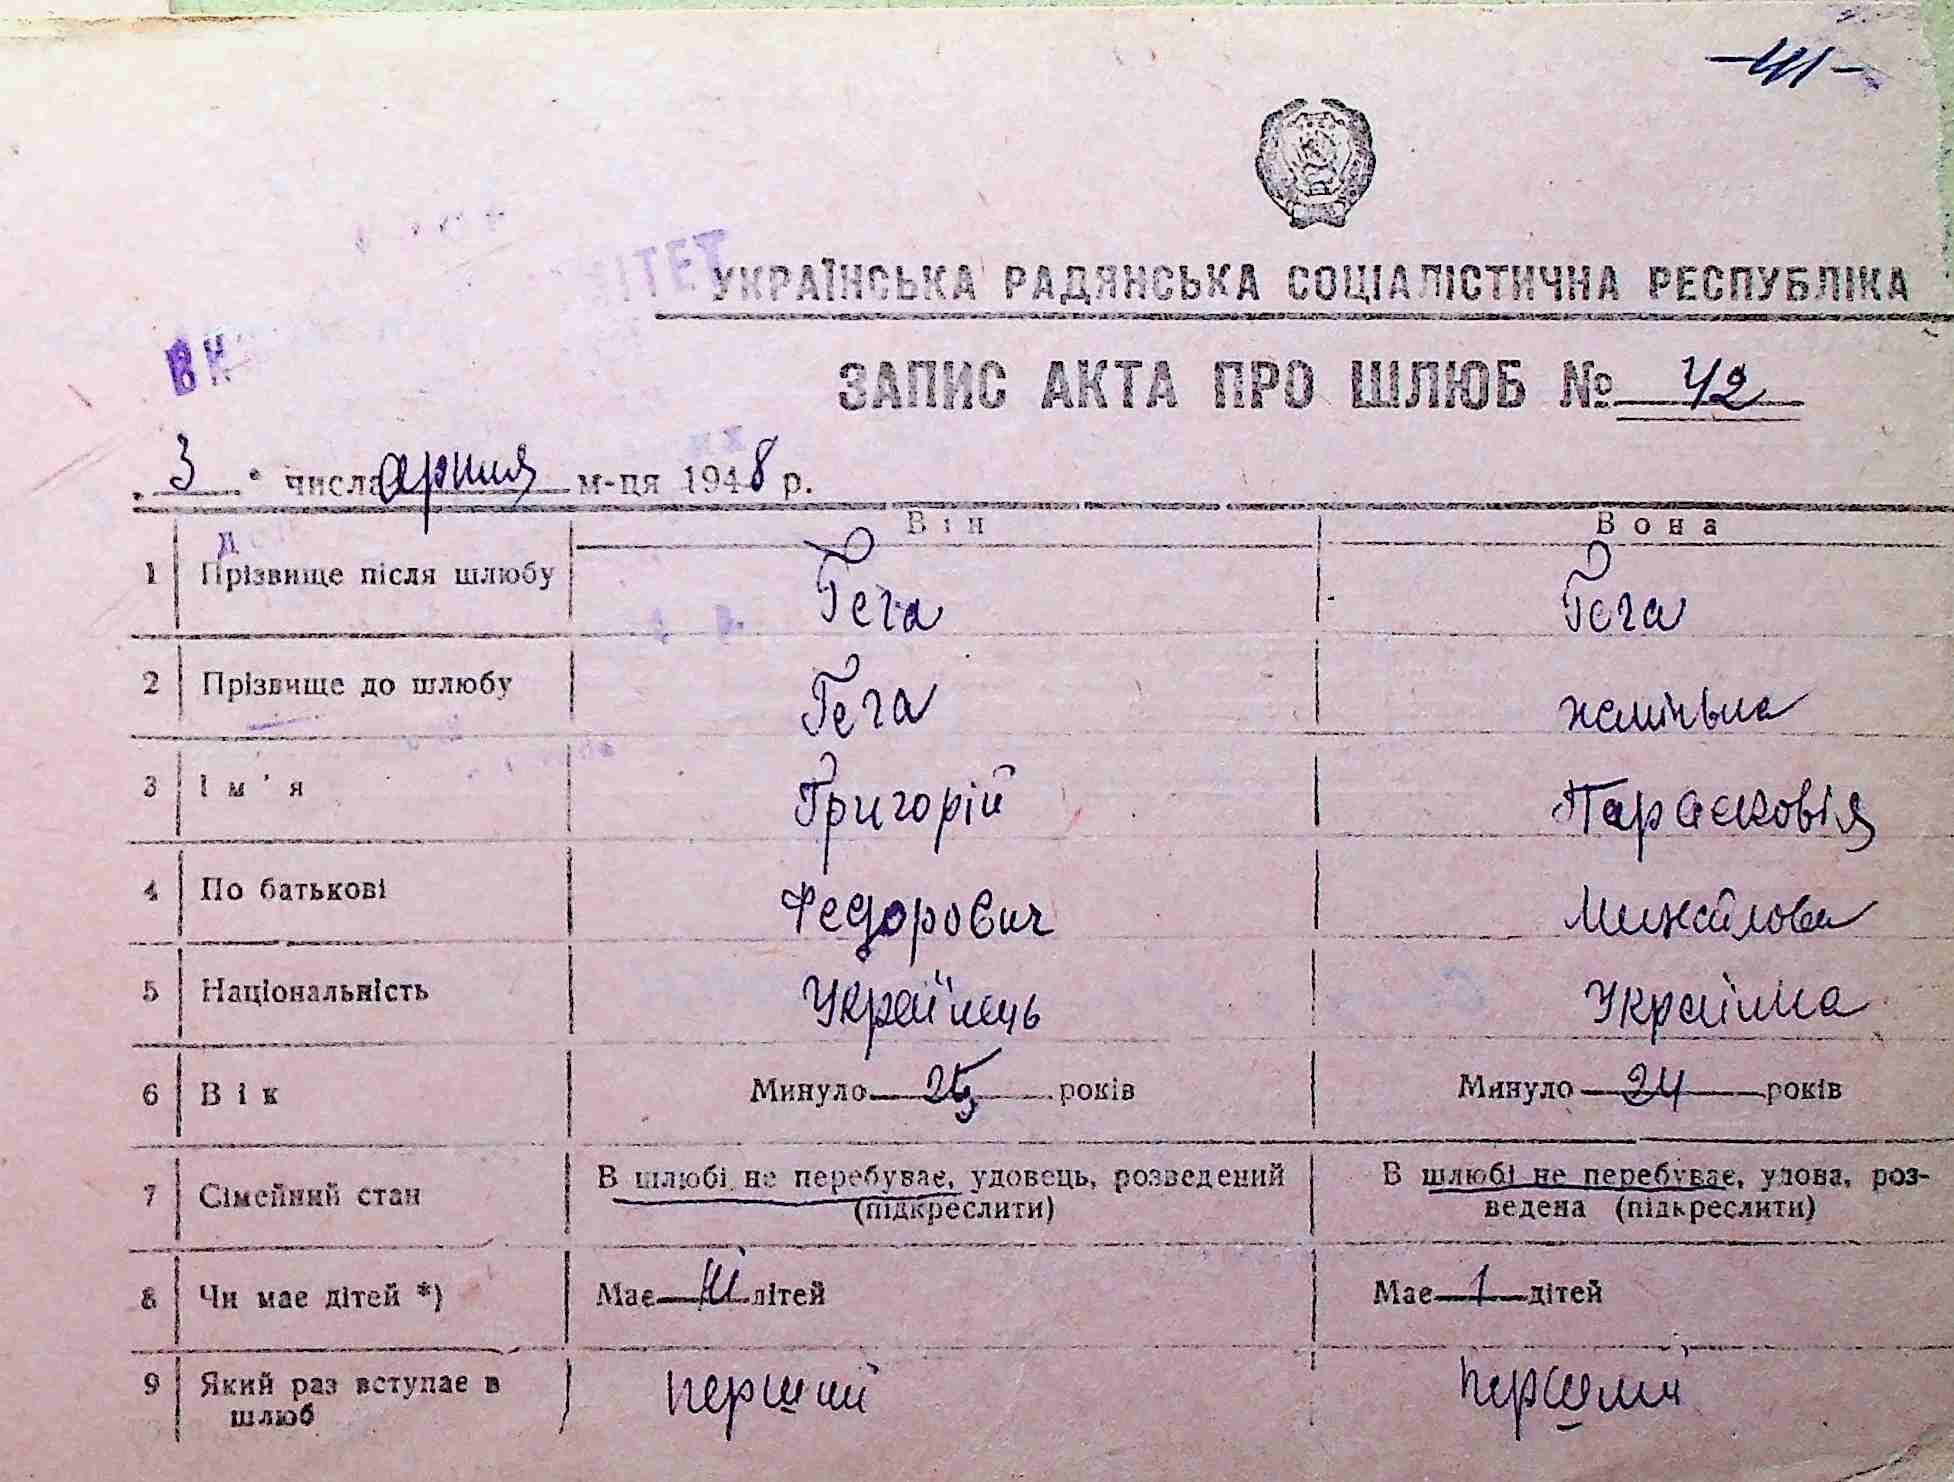 -41-
УКРАЇНСЬКА РАДЯНСЬКА СОЦІАЛІСТИЧНА РЕСПУБЛІКА
ЗАПИС АКТА ПРО ШЛЮБ № 42
„3“ числа м-ця 1948 р.
Він Вона
1 Прізвище після шлюбу Гега Гега
2 Прізвище до шлюбу Гега
3 Ім'я Григорій Парасковія
4 По батькові Федорович Михайлова
5 Національність Українець Українка
6 Вік Минуло 25 років Минуло 24 років
7 Сімейний стан В шлюбі не перебуває, удовець, розведений (підкреслити) В шлюбі не перебуває, удова, роз-
ведена (підкреслити)
8 Чи має дітей *) Має дітей Має 1 дітей
9 Який раз вступає в перший перший
шлюб